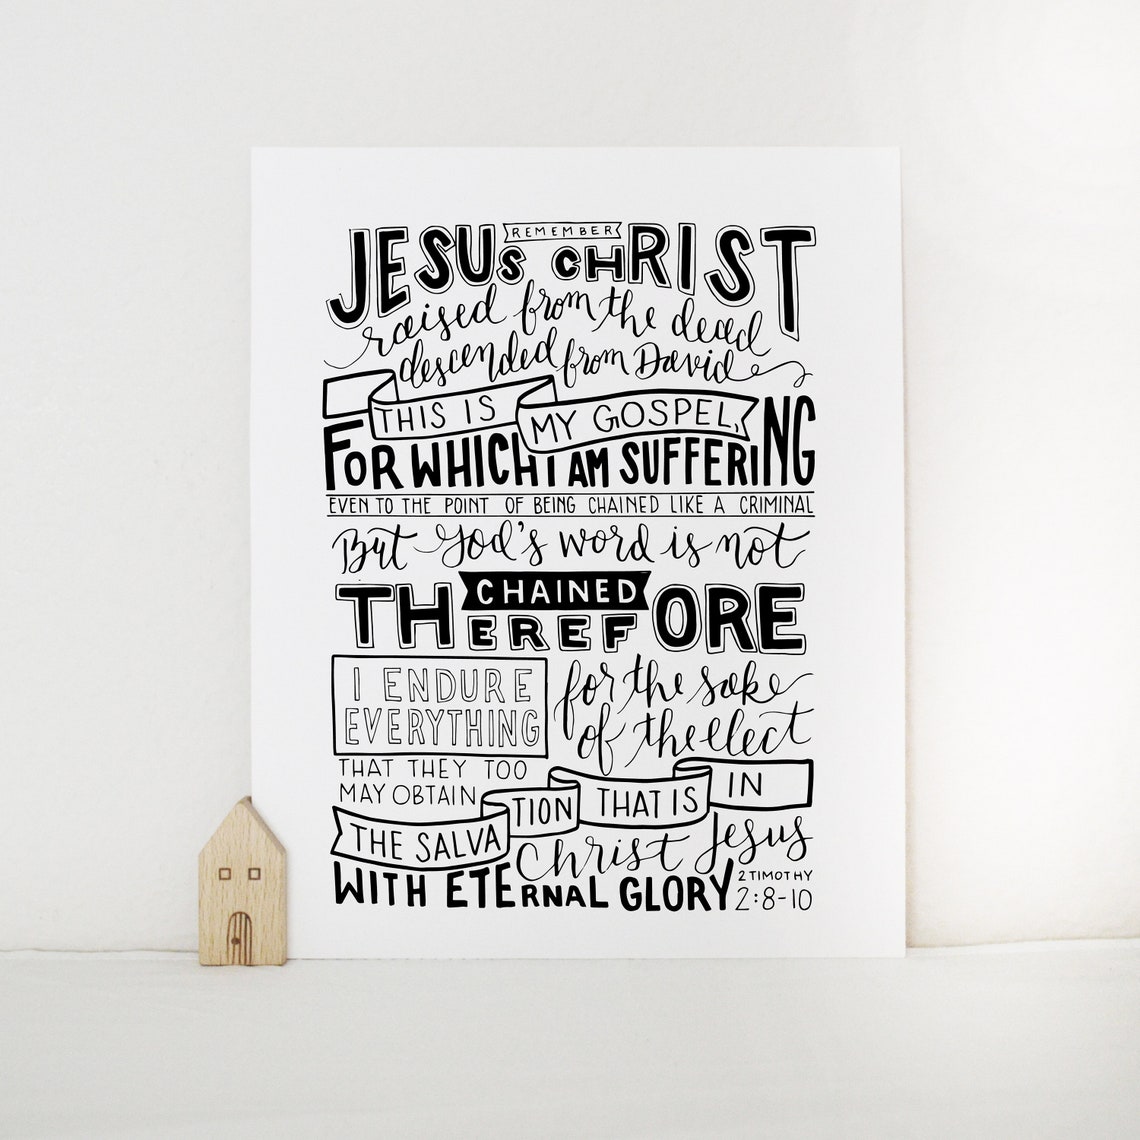 REMEMBER
JESUS CHRIST
raised from the dead
descended from David
THIS IS MY GOSPEL,
FOR WHICH I AM SUFFERING
EVEN TO THE POINT OF BEING CHAINED LIKE A CRIMINAL
But God's word is not
CHAINED
THEREFORE
I ENDURE
EVERYTHING
for the sake
of the elect
THAT THEY TOO
MAY OBTAIN
THE SALVATION THAT IS IN
Christ Jesus
WITH ETERNAL GLORY
2 TIMOTHY
2:8-10